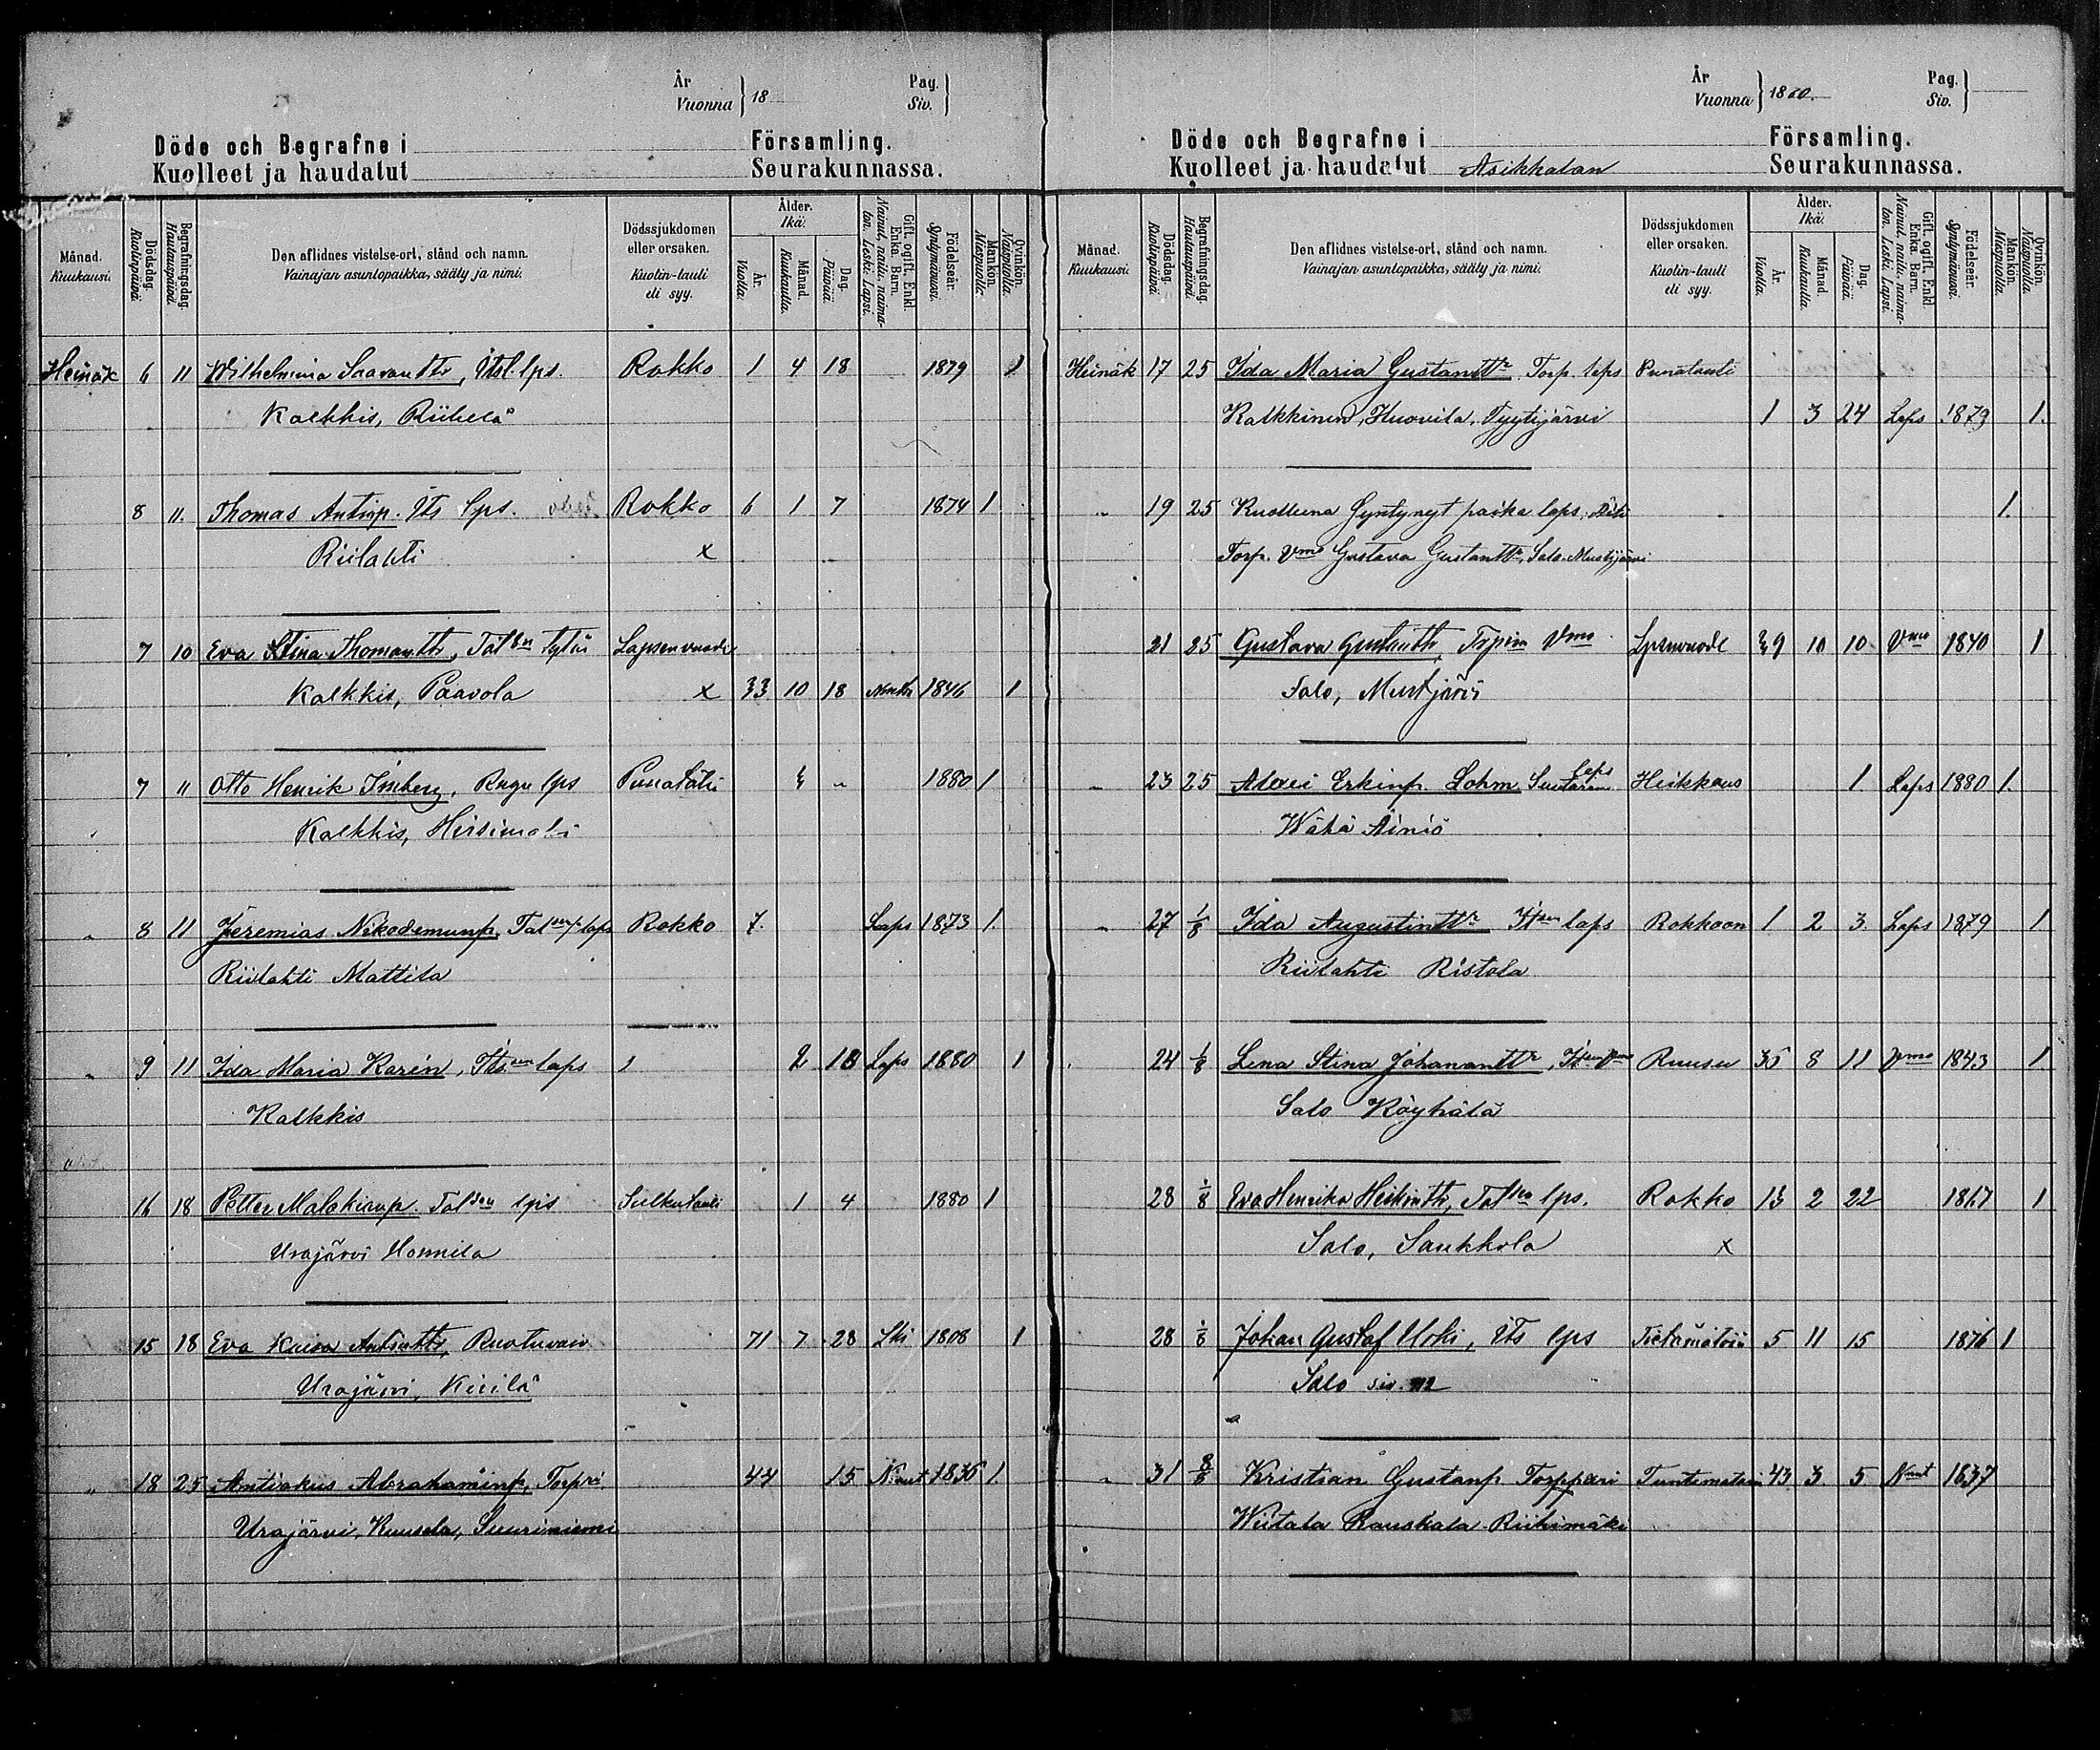 År
Vuonna } 18
Pag.
Siv. }
Döde och Begrafne i Församling.
Kuolleet ja haudatut Seurakunnassa.
Månad. Kuukausi.
Dödsdag. Kuolinpäivä.
Begrafningsdag. Hautauspäivä.
Den aflidnes vistelse-ort, stånd och namn.
Vainajan asuntopaikka, sääty ja nimi.
Dödssjukdomen eller orsaken.
Kuolin-tauti eli syy.
Ålder. Ikä.
År. Vuotta.
Månad. Kuukautta.
Dag. Päivää.
Gift, ogift, Enkl. Enka. Barn.
Nainut, naitu, naimaton. Leski. Lapsi.
Födelseår. Syntymävuosi.
Mankön. Miespuolia.
Qvinkön. Naispuolia.
Heinäk 6 11 Wilhelmina Saarantr, Itsl. lps. Rokko 1 4 18 1879 1
Kalkkis, Riihelä
8 11. Thomas Antinp. Its lps. Rokko 6 1 7 1874 1.
Riilahti x
7 10 Eva Stina Thomanttr, Tal tytär Lapsenvuode
Kalkkis, Paavola x 33 10 18 1846 1
7 11 Otto Henrik lps Punatauti „ 1880 1
Kalkkis,
„ 8 11 Jeremias Nikodemunp. Tal laps Rokko 7. Laps 1873 1.
Riilahti Mattila
„ 9 11 Ida Maria Karén, Its laps 2 18 Laps 1880 1
Kalkkis
16 18 Petter Malakianp. Tal lps 1 4 1880 1
Urajärvi
15 18 Eva Kaisa Antintr, 71 7 28 Lki 1808 1
Urajärvi,
„ 18 25 Antiokus Abrahaminp, Torpri. 44 15 N:nut 1836 1.
Urajärvi, Kuusela, Suuriniemi
År
Vuonna } 1880.
Pag.
Siv. }
Döde och Begrafne i Församling.
Kuolleet ja haudatut Asikkalan Seurakunnassa.
Månad. Kuukausi.
Dödsdag. Kuolinpäivä.
Begrafningsdag. Hautauspäivä.
Den aflidnes vistelse-ort, stånd och namn.
Vainajan asuntopaikka, sääty ja nimi.
Dödssjukdomen eller orsaken.
Kuolin-tauti eli syy.
Ålder. Ikä.
År. Vuotta.
Månad. Kuukautta.
Dag. Päivää.
Gift, ogift, Enkl. Enka. Barn.
Nainut, naitu, naimaton. Leski. Lapsi.
Födelseår. Syntymävuosi.
Mankön. Miespuolia.
Qvinkön. Naispuolia.
Heinäk 17 25 Ida Maria Gustanttr Torp. laps Punatauti
Kalkkinen, Huovila, Tyytijärvi 1 3 24 Laps 1879 1.
„ 19 25 Kuolleena Syntynyt poika laps; Äiti 1.
Torp. Vmo Gustava Gustanttr, Salo Mustjärvi
21 25 Gustava Gustanttr, Vmo Lpsenvuode 39 10 10 Vmo 1840 1
Salo, Mustjärvi
„ 23 25 Alexei Erkinp. Lohm Suutarin laps Heikkous 1 Laps 1880 1.
Wähä Äiniö
„ 27 1/8 Ida Augustinttr Itsen laps Rokkoon 1 2 3. Laps 1879 1
Riilahti Ristola
24 1/8 Lena Stina Johananttr, Its Vmo Ruusu 36 8 11 Vmo 1843 1.
Salo Köyhälä
28 1/8 Eva Henrika Heikintr, Tal lps. Rokko 13 2 22 1867 1
Salo, Saukkola x
28 1/8 Johan Gustaf Uoti, Its lps Tietämätöin 5 11 15 1876 1
Salo siv.
„ 31 8/8 Kristian Gustanp. Torppari Tuntematoin 43 3 5 Nnut 1837
Wiitala Rauskala Riihimäki